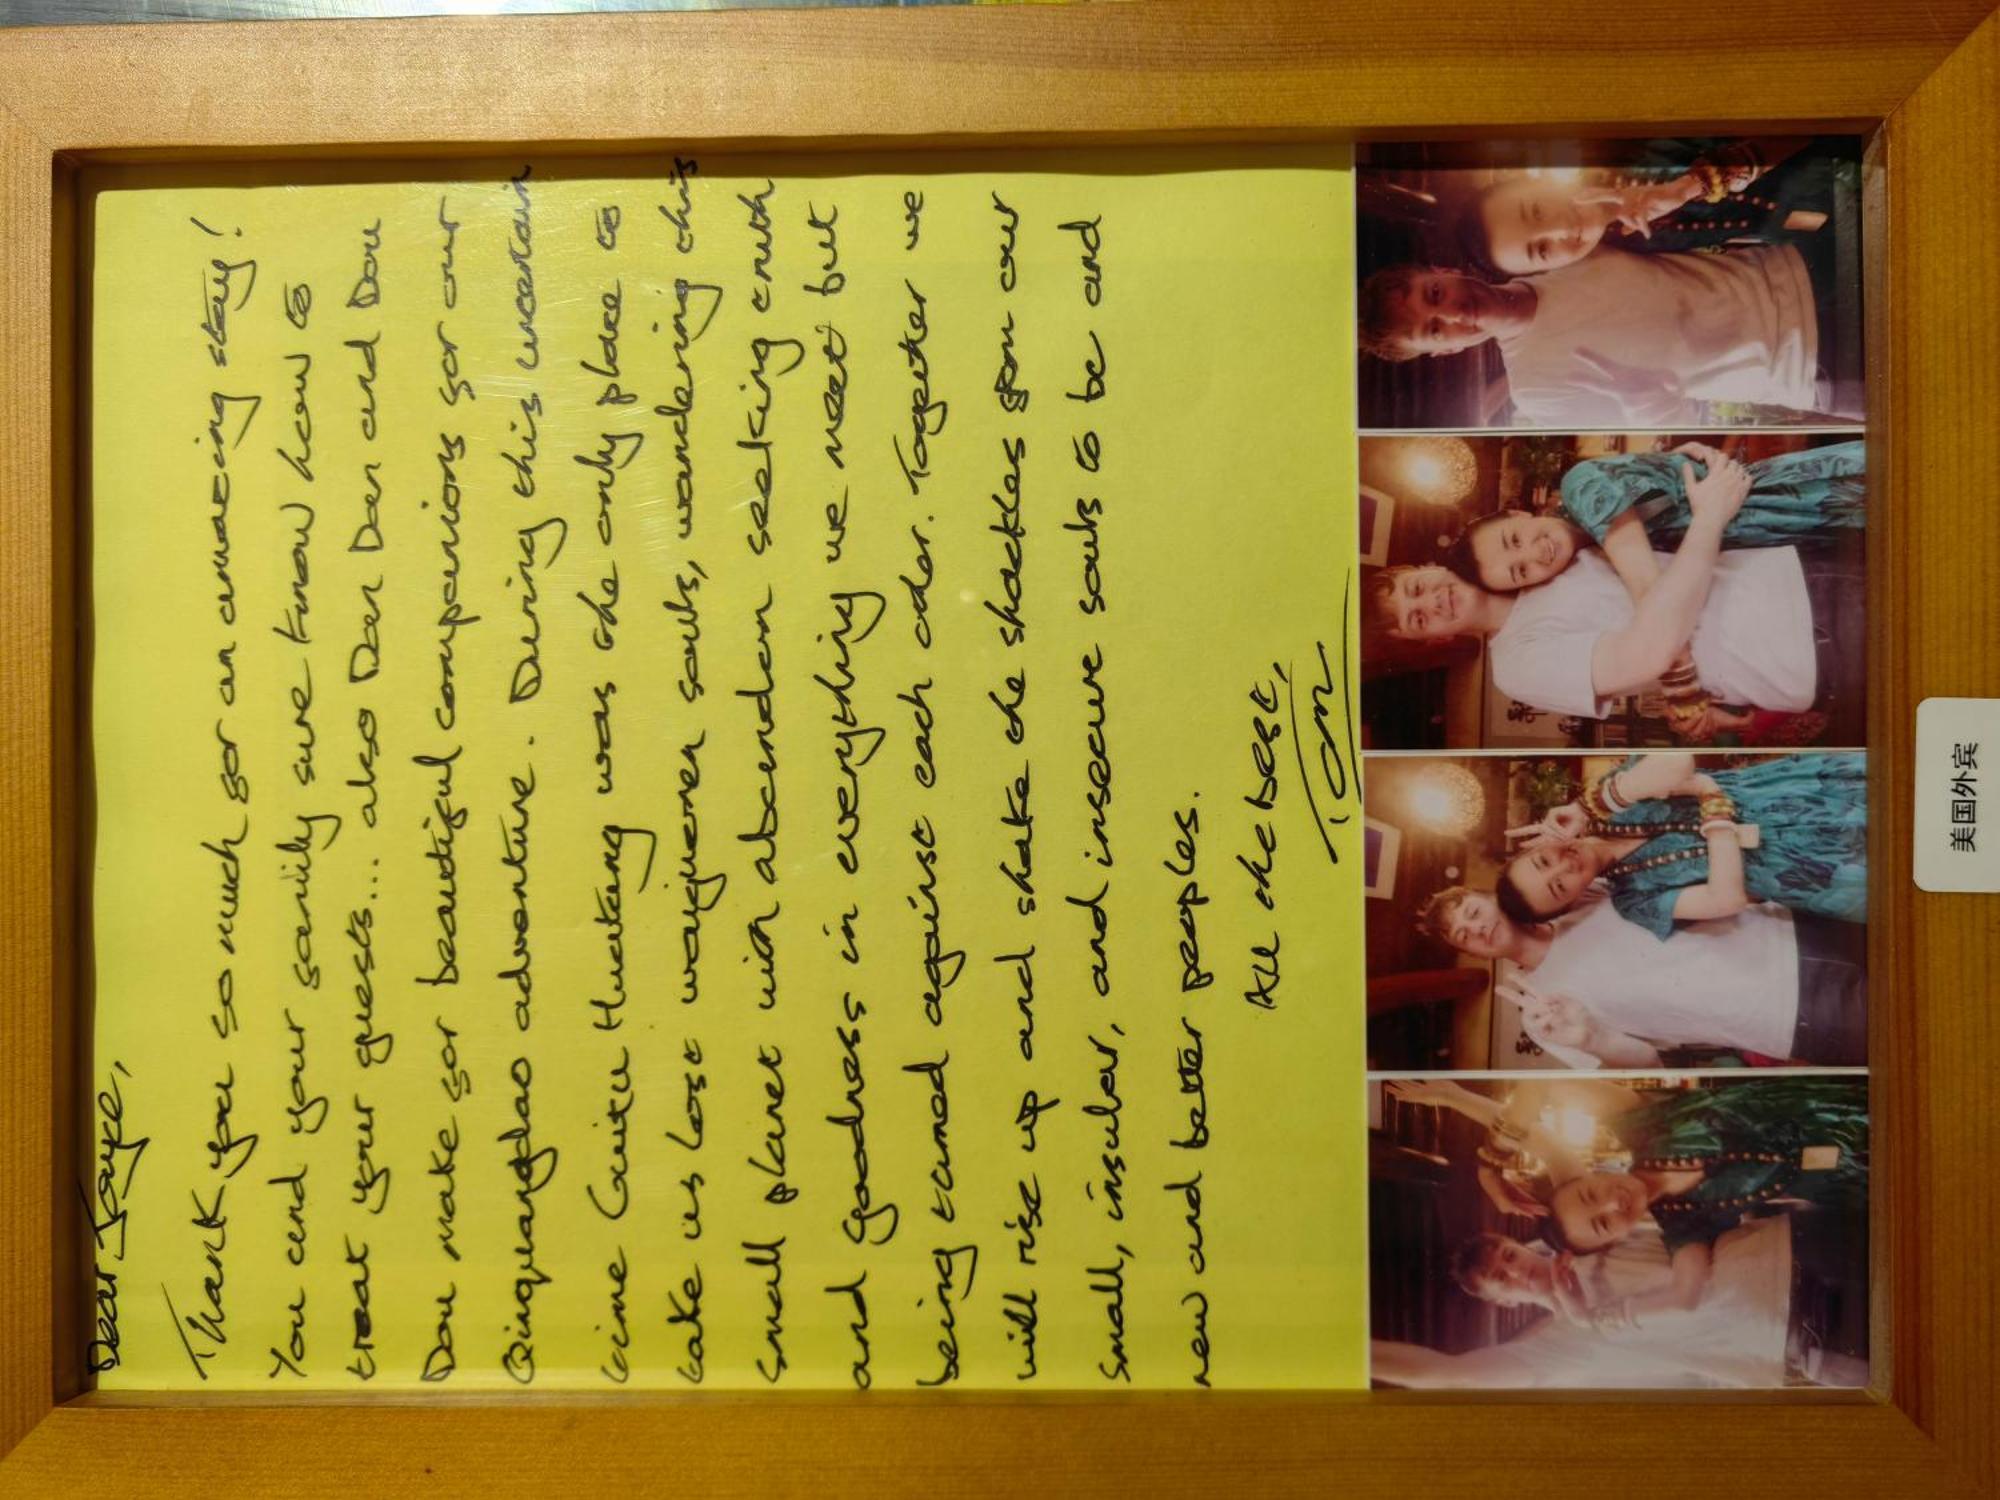 Dear Joyce,
Thank you so much for an amazing stay!
You and your family sure know how to
treat your guests... also Dan Dan and Dou
Dou make for beautiful companions for our
Qinquangdao adventure. During this uncertain
time Guitu Hutong was the only place to
take us lost wayguener souls, wandering this
small planet with abandon seeking truth
and goodness in everything we meet but
being turned against each other. Together we
will rise up and shake the shackles from our
small, insular, and insecure souls to be and
new and better peoples.
All the best,
Tom
美国外宾